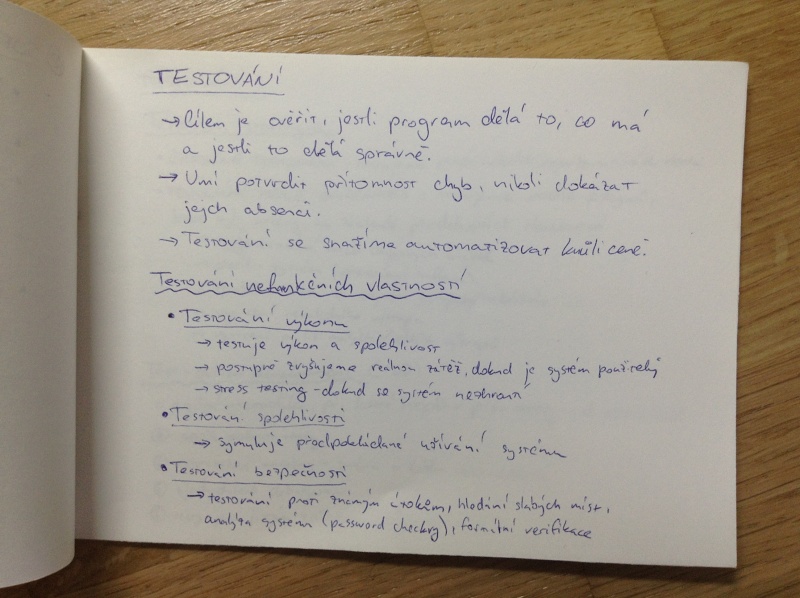 TESTOVÁNÍ
→ Cílem je ověřit, jestli program dělá to, co má
a jestli to dělá správně.
→ Umí potvrdit přítomnost chyb, nikoli dokázat
jejch absenci.
→ Testování se snažíma automatizovat kvůli ceně.
Testování nefunkčních vlastností
• Testování výkonu
→ testuje výkon a spolehlivost
→ postupně zvyšujeme reálnou zátěž, dokud je systém použitelný
→ stress testing - dokud se systém neohrantí
• Testování spolehlivosti
→ symuluje předpokládané užívání systému
• Testování bezpečnosti
→ testování proti známým útokům, hledání slabých míst,
analýza systému (password checkry), formální verifikace